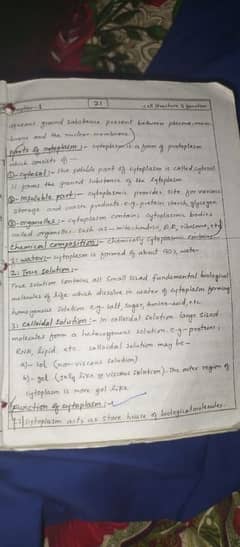 Chapter-1 21 Cell Structure & function
aqueous ground substance present between plasma mem-
brane and the nuclear membrane)
Parts of cytoplasm :- cytoplasm is a form of protoplasm
which consists of —
① cytosol :- the soluble part of cytoplasm is called cytosol
it forms the ground substance of the cytoplasm
② Insoluble part :- cytoplasmic provides site for various
storage and waste products. e.g. protein starch, glycogen
③ organelles :- cytoplasm contains cytoplasmic bodies
called organelles. Such as - mitochondria, E.R, ribosome, etc
Chemical composition :- Chemically cytoplasm contains
1: water :- cytoplasm is formed of about 90% water
2: True Solution :-
True solution contains all small sized fundamental biological
molecules of life which dissolve in water of cytoplasm forming
homogenous solution e.g. salt, sugar, amino-acid, etc.
3: Colloidal Solution :- In colloidal solution large sized
molecules form a heterogenous solution. e.g - protens,
RNA, lipid, etc. colloidal solution may be -
a)- sol (non-viscous solution)
b)- gel (jelly like or viscous solution). The outer region of
cytoplasm is more gel like.
Function of cytoplasm :-
1: cytoplasm acts as store house of biological molecules.